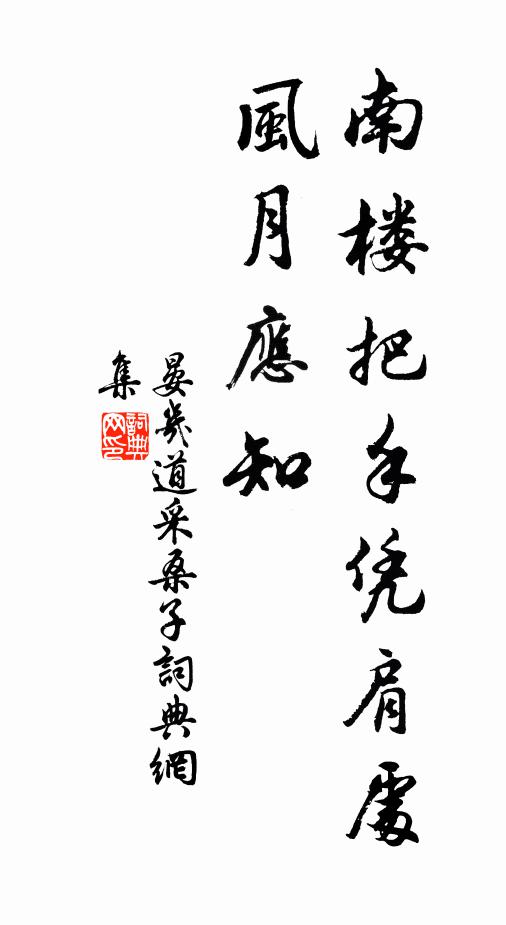 南楼把手凭肩處
風月應知
晏幾道采桑子詞典網
集
詞典网印